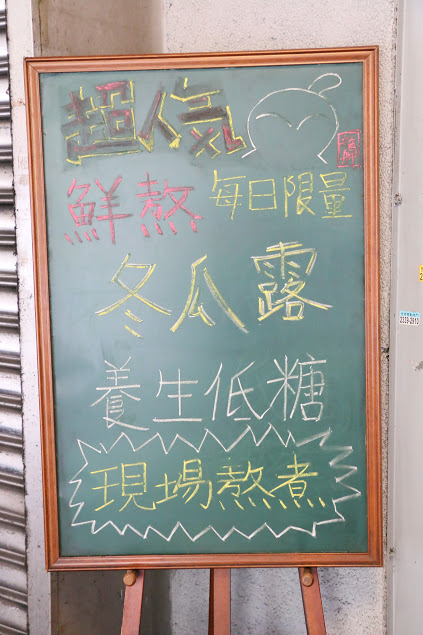 超人氣
鮮熬 每日限量
冬瓜露
養生低糖
現場熬煮
2339-2913